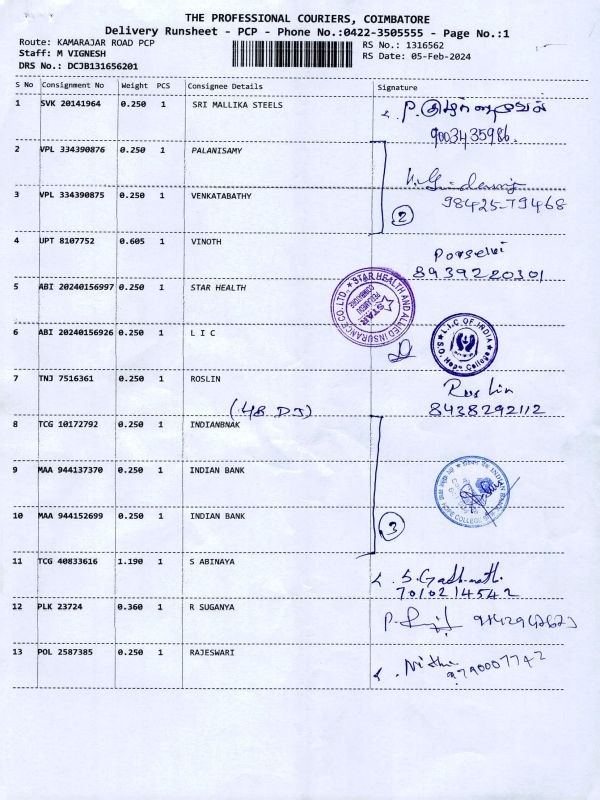 THE PROFESSIONAL COURIERS, COIMBATORE
Delivery Runsheet - PCP - Phone No.:0422-3505555 - Page No.:1
Route: KAMARAJAR ROAD PCP
Staff: M VIGNESH
DRS No.: DCJB131656201
RS No.: 1316562
RS Date: 05-Feb-2024
S No Consignment No Weight PCS Consignee Details Signature
1 SVK 20141964 0.250 1 SRI MALLIKA STEELS
9003435986.
2 VPL 334390876 0.250 1 PALANISAMY
3 VPL 334390875 0.250 1 VENKATABATHY
98425-79468
2
4 UPT 8107752 0.605 1 VINOTH
Porselvi
8939220301
5 ABI 20240156997 0.250 1 STAR HEALTH
STAR HEALTH AND ALLIED INSURANCE CO.LTD.
STAR
6 ABI 20240156926 0.250 1 L I C
L.I.C OF INDIA
S.O. Hope College
7 TNJ 7516361 0.250 1 ROSLIN
Roslin
8438292112
8 TCG 10172792 0.250 1 INDIANBNAK
9 MAA 944137370 0.250 1 INDIAN BANK
INDIAN BANK
HOPE COLLEGE
10 MAA 944152699 0.250 1 INDIAN BANK
3
11 TCG 40833616 1.190 1 S ABINAYA
7010214542
12 PLK 23724 0.360 1 R SUGANYA
13 POL 2587385 0.250 1 RAJESWARI
9790007742